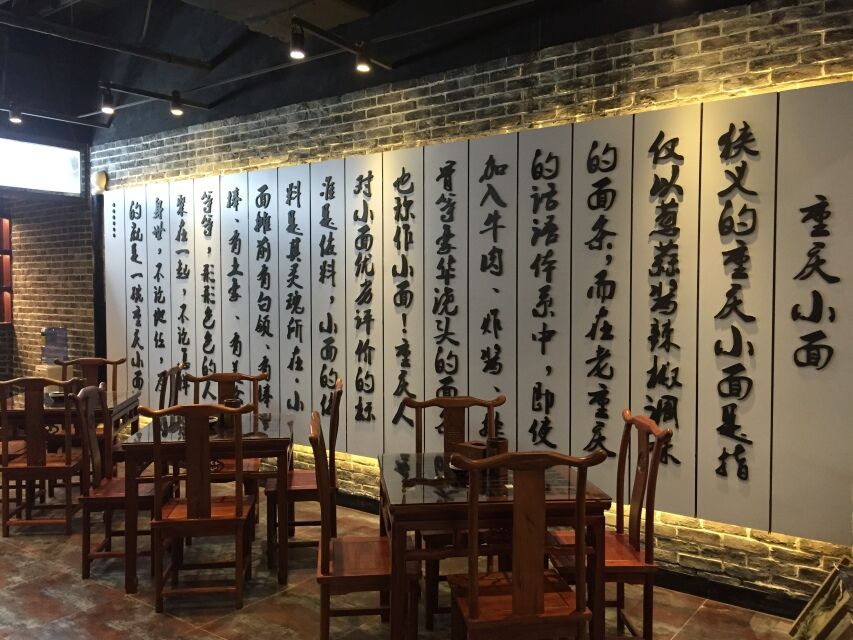 重庆小面
狭义的重庆小面是指
仅以葱蒜酱辣椒调味
的面条，而在老重庆
的话语体系中，即使
加入牛肉、炸酱、
骨等豪华浇头的面
也称作小面！重庆人
对小面优劣评价的标
准是佐料，小面的佐
料是其灵魂所在.小
面摊前有白领、有棒
棒、有土豪、有
等等，形形色色的人
聚在一起，不论
身世，不论地位，
的就是一碗重庆小面
......